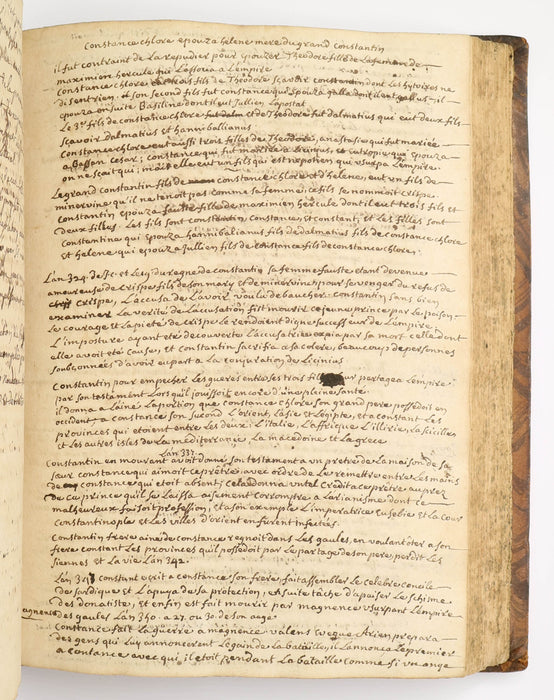 Constance chlore epouza helene mere du grand constantin
il fut contraint de la repudier pour epouzer Theodore fille de la femme de
maximien hercule qui l'associa a l'empire
Constance chlore eut trois fils de Theodore scavoir constantin dont les hytoires ne
disent rien, et son second fils fut constance qui epouza galla dont il eut gallus il
epouza en suitte Basiline dont il eut Jullien l'apostat
Le 3e fils de constance chlore et de Theodore fut dalmatius qui eut deux fils
scavoir dalmatius et hannibalianus
Constance chlore eut aussi trois filles de Theodore, anastasie qui fut mariée
a Bassan cesar; constance qui fut mariée a licinius, et eutropie qui epouza
on ne scait qui; mais elle eut un fils qui est nepotien qui usurpa l'empire
Le grand constantin fils de constance chlore et d helene, eut un fils de
minervine qu'il ne tenoit pas comme sa femme; ce fils se nommoit crispe
constantin epouza fauste fille de maximien hercule dont il eut trois fils et
deux filles. Les fils sont constantin, constance, et constant; et les filles sont
Constantine qui epouza hannibalianus fils de dalmatius fils de constance chlore
et helene qui epouza Jullien fils de constance fils de constance chlore
Lan 324. de J.c. et Le 19 du regne de constantin sa femme fauste etant devenue
amoureuse de Crispe fils de son mary et de minervine, pour se venger du refus de
Crispe, L'accusa de L'avoir voulu debaucher. Constantin sans bien
examiner La verité de L'accusation fist mourir ce jeune prince par le poison
Le courage et La pieté de crispe Le rendoient digne successeur de L'empire
L'imposture ayant eté decouverte L'accusatrice expia par sa mort celle dont
elle avoit eté cause, et Constantin sacrifia a sa colere, beaucoup de personnes
soubçonnées d'avoir eu part a La conjuration du Licinius
Constantin pour empecher Les gueres entre ses trois fils Leur partagea L'empire
par son testament Lors qu'il jouissoit encore d'une pleine santé.
il donna a L'ainé La portion que constance chlore son grand pere possedoit en
occident; a constance son second L'orient, L'asie et L'egipte, et a constant Les
provinces qui etoient entre Les deux: L'italie, L'affrique L'illirie, La sicile
et Les autres isles de La mediterranée, La macedoine et La grece
Lan 337.
Constantin en mourant avoit donné son testament a un pretre de La maison de sa
sœur constance qui aimoit ce pretre, avec ordre de Le remettre entre Les mains
de constance qui etoit absent; cela donna un tel credit a ce pretre auprez
de ce prince qu'il se Laissa aisement corrompre a L'arianisme dont ce
malheureux faisoit profession, et a son exemple L'imperatrice Eusebie et La cour
Constantinople et Les villes d'orient en furent infectées.
Constantin frere ainé de constance regnoit dans Les gaules, en voulant oter a son
frere constant Les provinces qu'il possedoit par Le partage de son pere, perdit Les
siennes et La vie Lan 342.
Lan 347 constant ecrit a constance son frere, fait assembler Le celebre concile
de sardique et L'apuya de sa protection, et suite tâche d'apaiser Le schisme
des donatiste, et enfin est fait mourir par magnence usurpant L'empire
des gaules Lan 350. a 27. ou 30 de son aage
magnence
Constance fait La guerre a magnence. valens eveque Arien prepara
des gens qui Luy annoncerent Le gain de La bataille, il L'annonca Le premier
a constance avec qui il etoit pendant La bataille comme si un ange